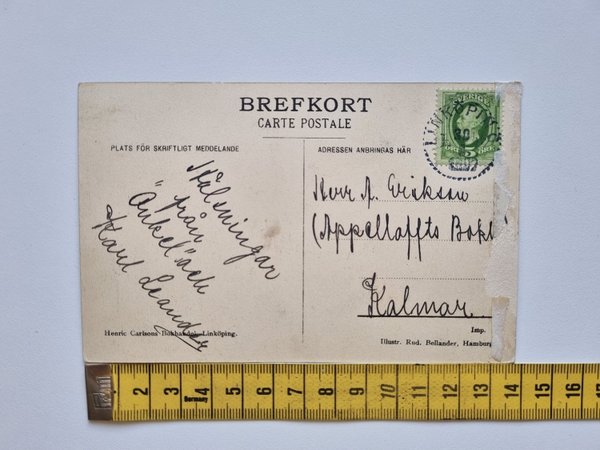 BREFKORT
CARTE POSTALE
PLATS FÖR SKRIFTLIGT MEDDELANDE
ADRESSEN ANBRINGAS HÄR
SVERIGE
LINKÖPING
Hälsningar
från
"Onkel" och
Karl Leander
Herr A. Erikson
(Appelloffts Bokh
Kalmar
Henric Carlsons Bokhandel, Linköping.
Imp.
Illustr. Rud. Bellander, Hamburg
1 2 3 4 5 6 7 8 9 10 11 12 13 14 15 16 17
Germany